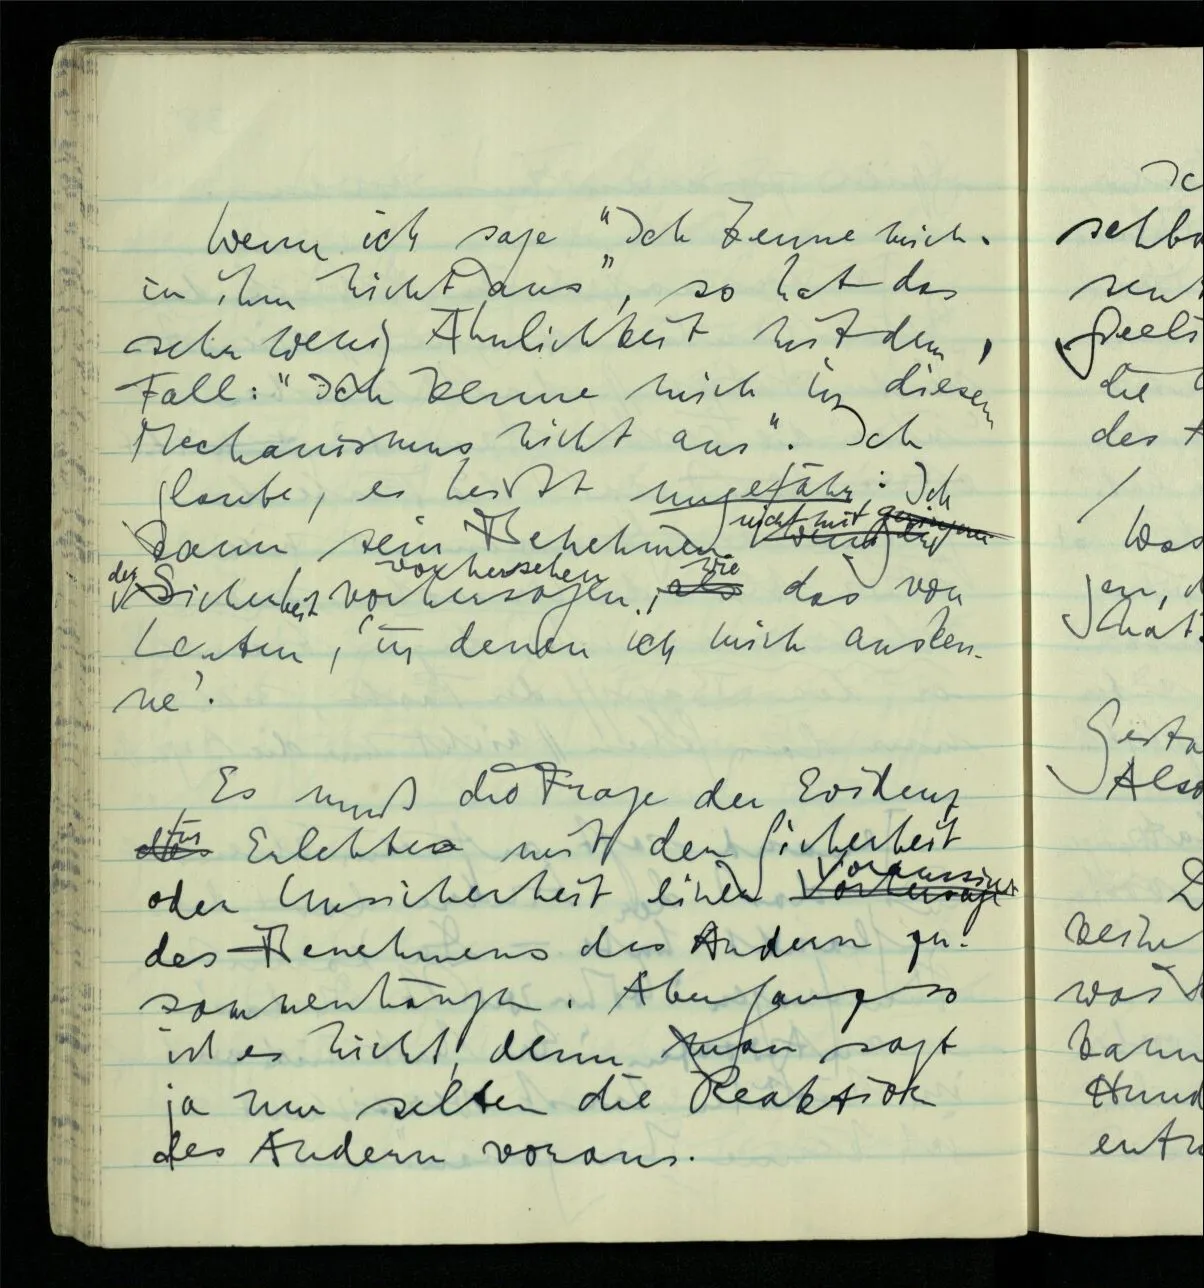 Wenn ich sage "Ich kenne mich
in ihm nicht aus", so hat das
sehr wenig Ähnlichkeit mit dem
Fall: "Ich kenne mich in diesem
Mechanismus nicht aus". Ich
glaube, es heißt ungefähr: Ich
nicht mit geringerer
kann sein Benehmen
der vorhersehen wie
Sicherheit vorhersagen, als das von
Leuten, 'in denen ich mich ausken-
ne'.
Es muß die Frage der Evidenz
für
des Erlebten mit der Sicherheit
Voraussicht
oder Unsicherheit einer Vorhersage
des Benehmens des Andern zu-
sammenhängen. Aber ganz so
ist es nicht, denn man sagt
ja nur selten die Reaktion
des Andern voraus.
Ich
die
des
/
Was
Also
was
kann